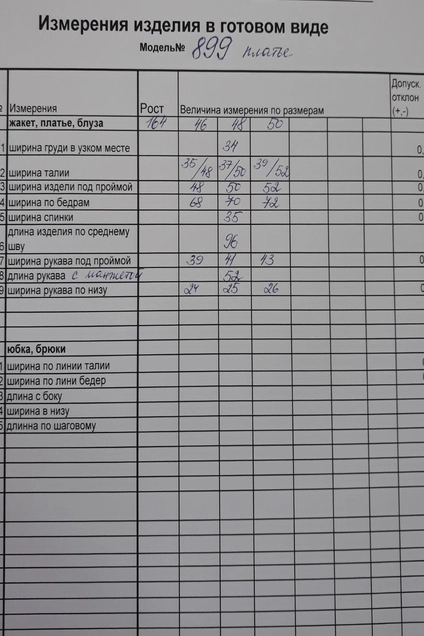 Измерения изделия в готовом виде
Модель№ 899 платье
Измерения Рост Величина измерения по размерам Допуск. отклон (+,-)
жакет, платье, блуза 164 46 48 50
1 ширина груди в узком месте 34 0,
2 ширина талии 35/48 37/50 39/52 0,
3 ширина издели под проймой 48 50 52 0
4 ширина по бедрам 68 70 72 0
5 ширина спинки 35 0
6 длина изделия по среднему шву 96
7 ширина рукава под проймой 39 41 43 0
8 длина рукава с манжетой 52
9 ширина рукава по низу 24 25 26 0
юбка, брюки
1 ширина по линии талии
2 ширина по лини бедер
3 длина с боку
4 ширина в низу
5 длинна по шаговому